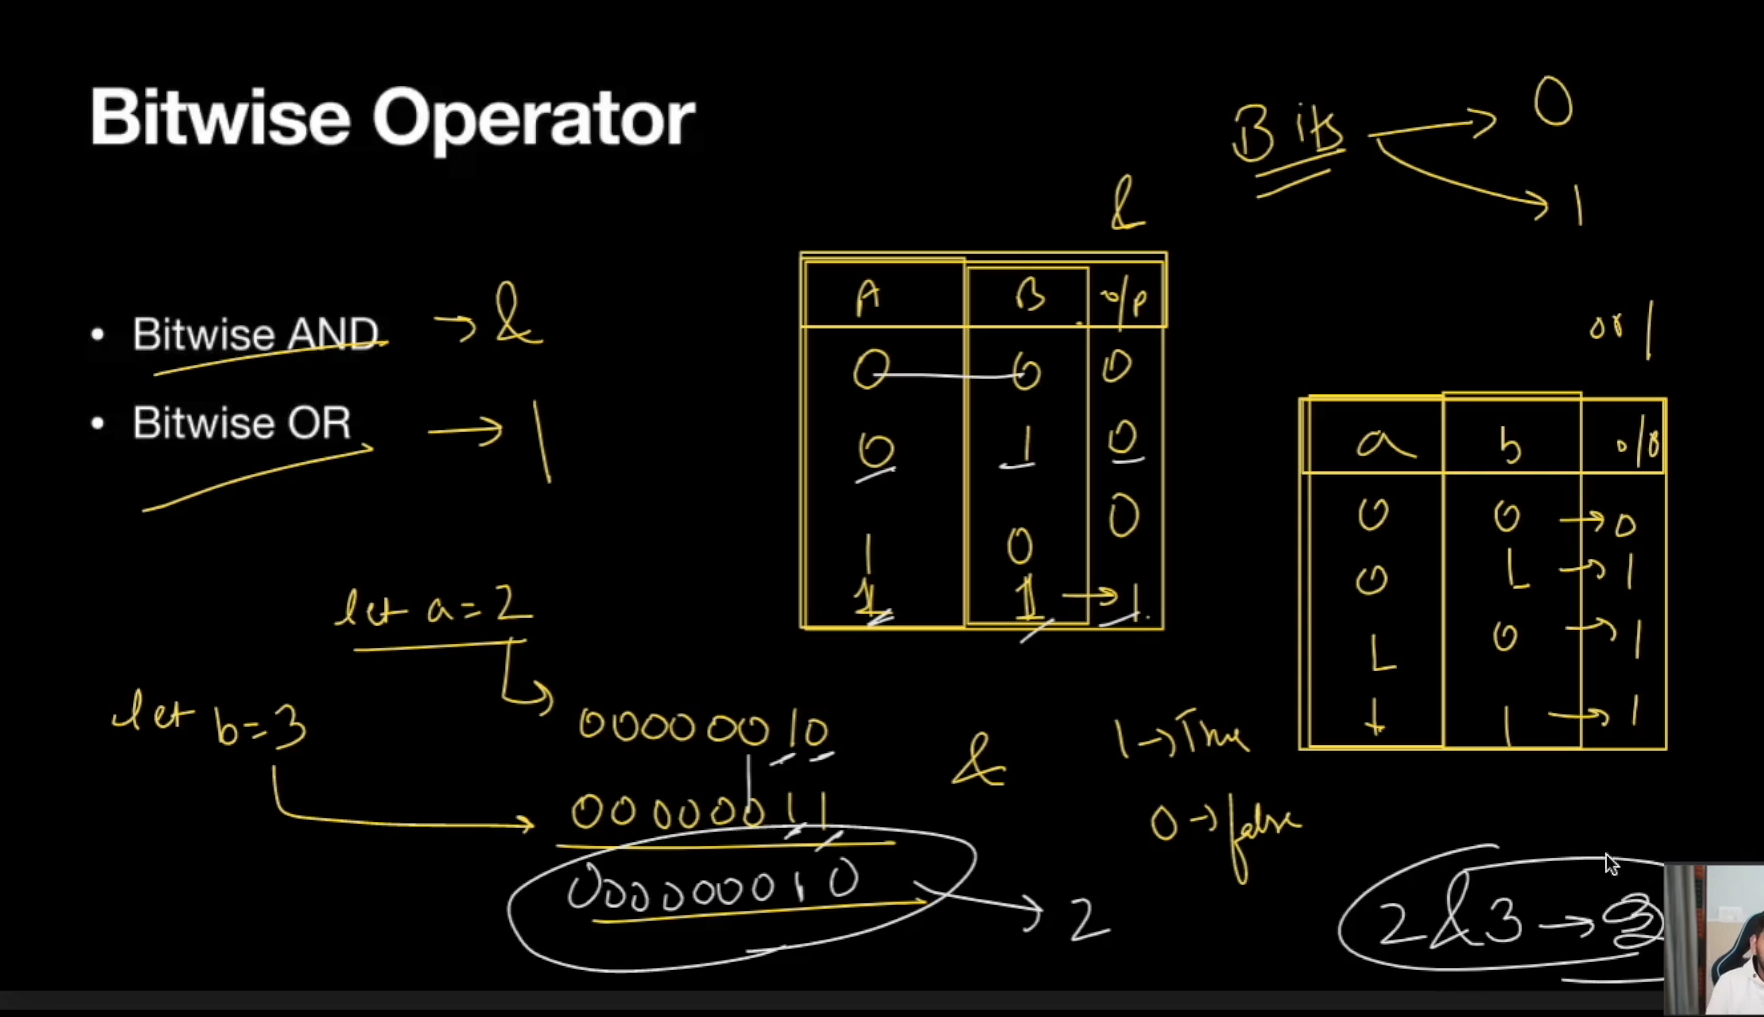 Bitwise Operator
Bits → 0
→ 1
&
• Bitwise AND → &
• Bitwise OR → |
A B o/p
0 0 0
0 1 0
1 0 0
1 1 → 1
or |
a b
0 0 → 0
0 1 → 1
1 0 → 1
1 1 → 1
let a = 2
let b = 3
00000010
&
00000011
000000010 → 2
1 → True
0 → false
2 & 3 →